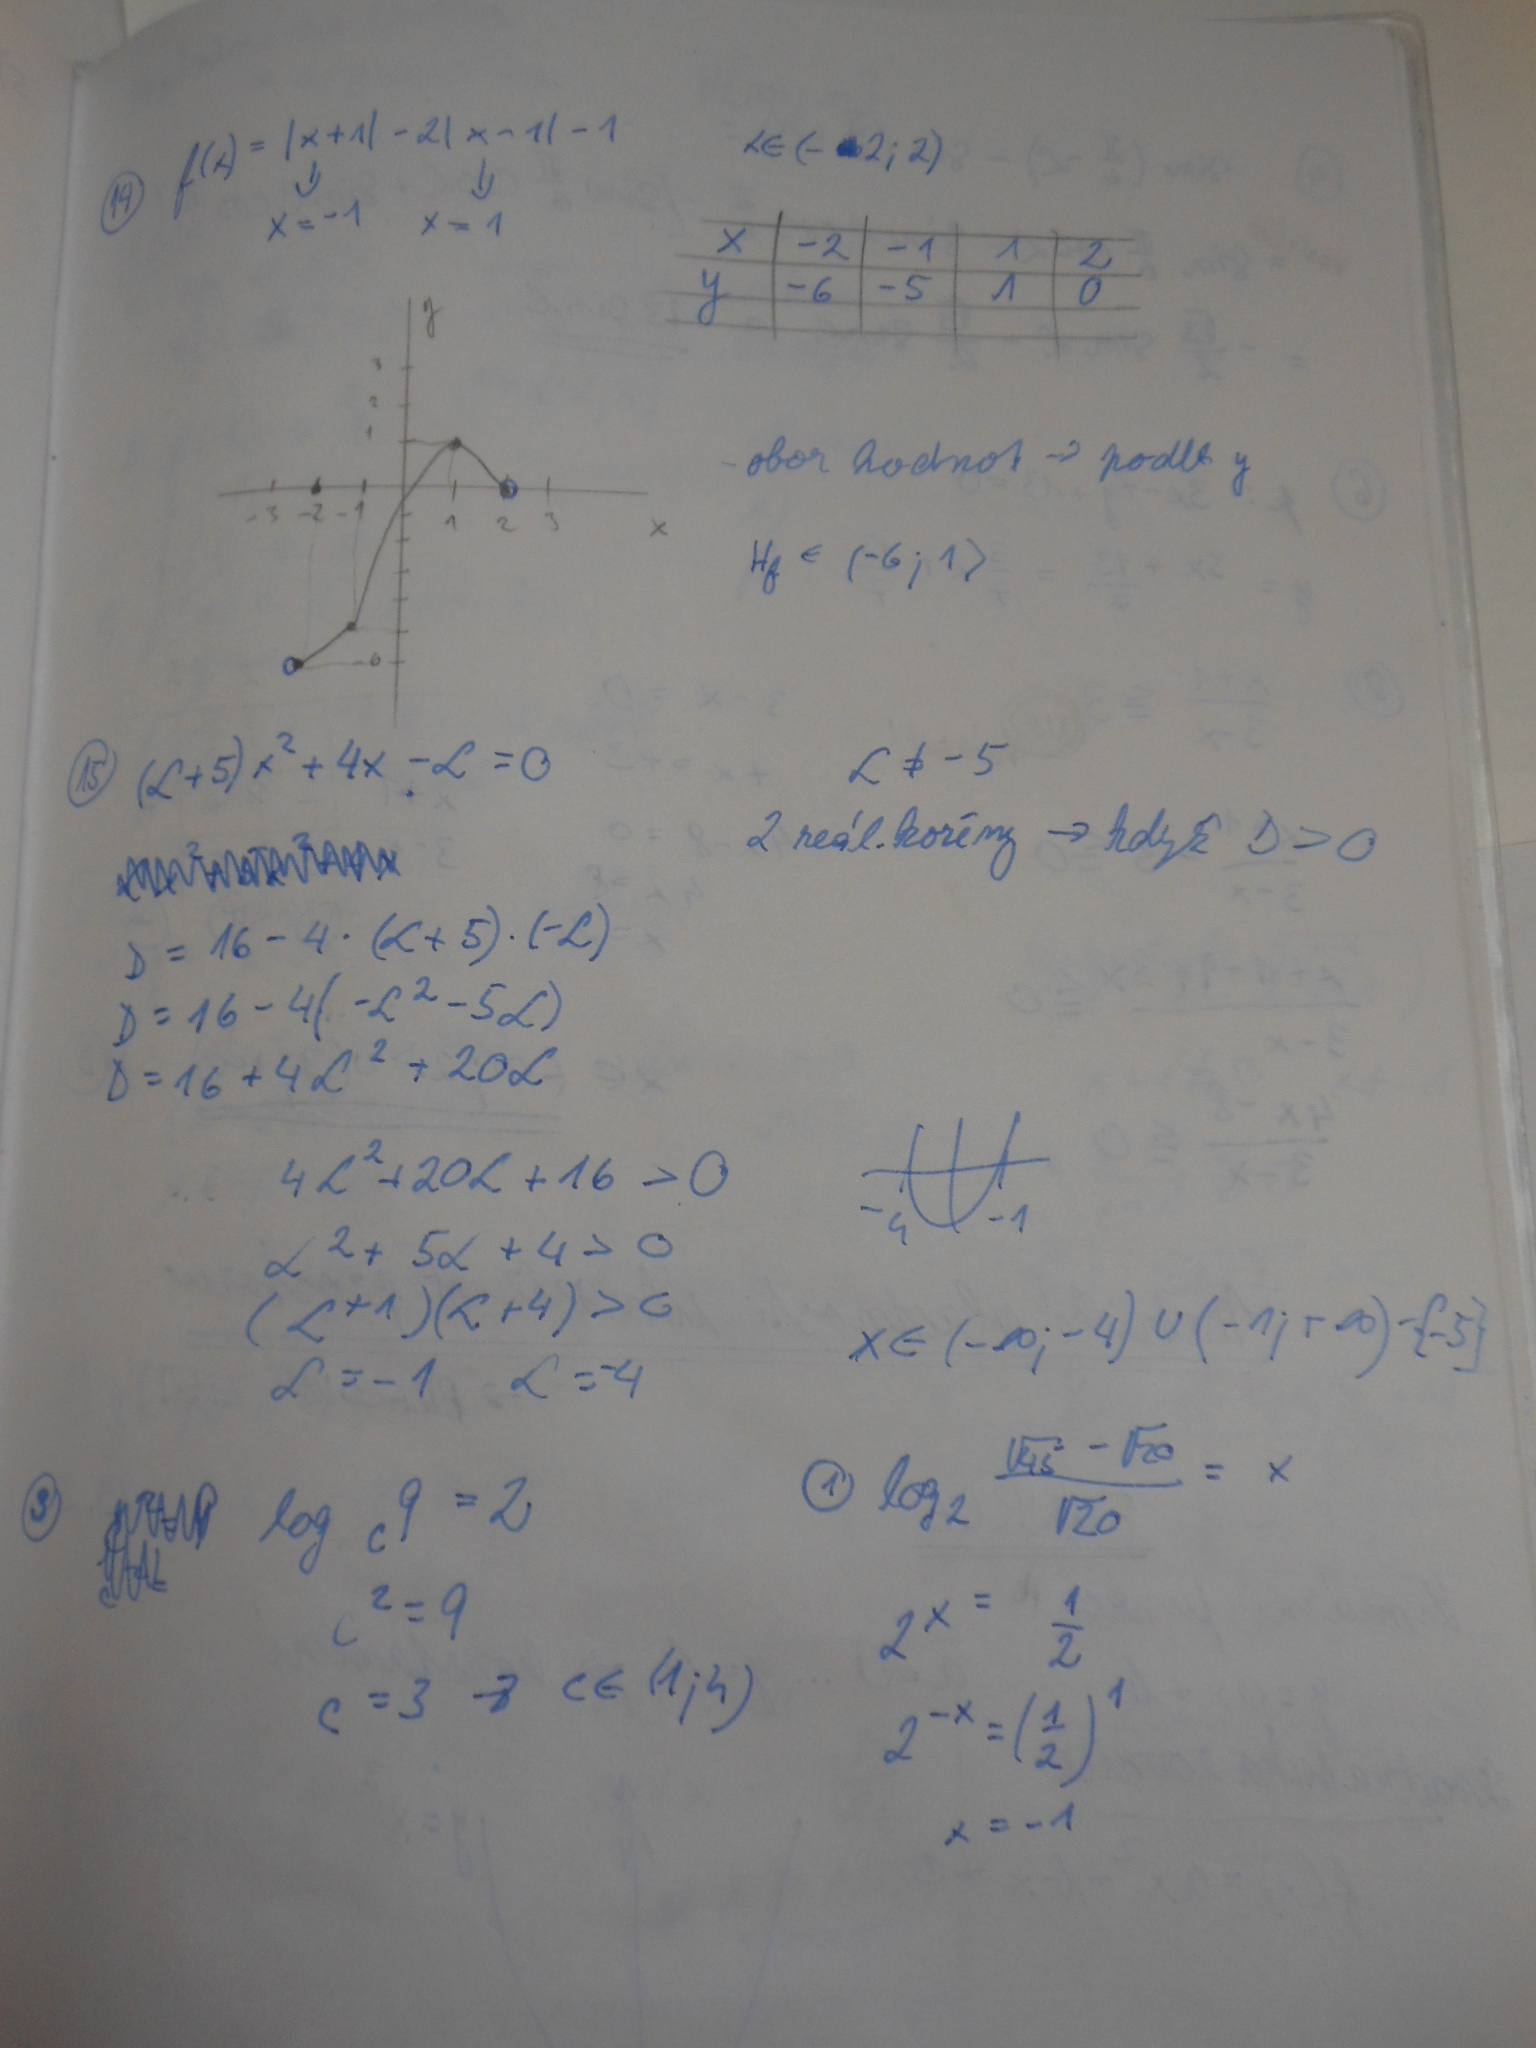 14 f(x) = |x+1| - 2|x-1| - 1 x∈(-2; 2)
x=-1 x=1
x -2 -1 1 2
y -6 -5 1 0
y
3
2
1
-3 -2 -1 1 2 3 x
-6
- obor hodnot → podle y
Hf ∈ (-6; 1⟩
15 (α+5)x² + 4x - α = 0 α ≠ -5
2 reál. kořeny → když D > 0
D = 16 - 4·(α+5)·(-α)
D = 16 - 4(-α² - 5α)
D = 16 + 4α² + 20α
4α² + 20α + 16 > 0
α² + 5α + 4 > 0
(α+1)(α+4) > 0
α = -1 α = -4
-4 -1
x ∈ (-∞; -4) ∪ (-1; +∞) - {-5}
3 log_c 9 = 2
c² = 9
c = 3 → c∈(1;4)
1 log₂ (√45 - √20)/√20 = x
2^x = 1/2
2^-x = (1/2)^1
x = -1